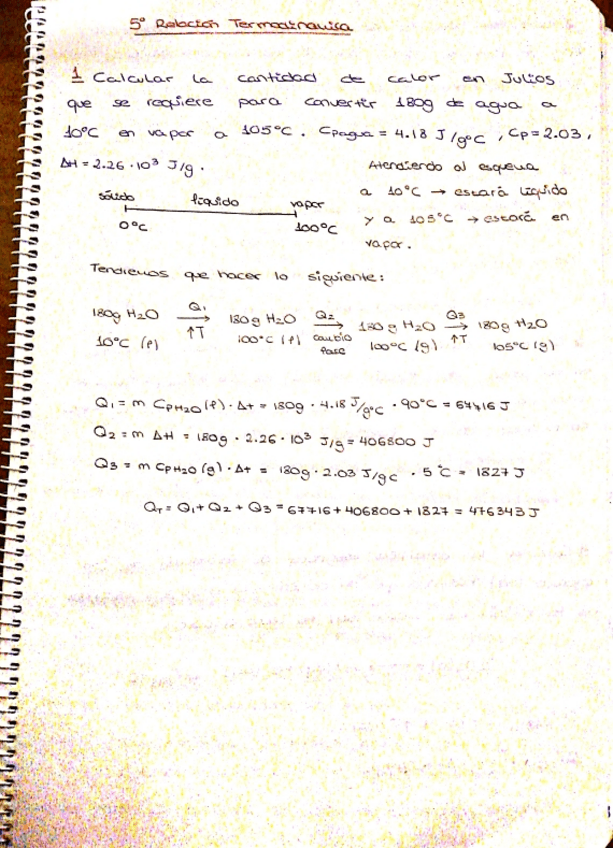 5º Relación Termodinámica
1 Calcular la cantidad de calor en Julios
que se requiere para convertir 180g de agua a
10ºC en vapor a 105ºC. Cpagua = 4.18 J/gºC, Cp = 2.03,
ΔH = 2.26·10³ J/g.
Atendiendo al esquema
a 10ºC → estará líquido
y a 105ºC → estará en
vapor.
sólido líquido vapor
0ºC 100ºC
Tendremos que hacer lo siguiente:
180g H2O Q1 → ↑T 180g H2O Q2 → cambio fase 180g H2O Q3 → ↑T 180g H2O
10ºC (l) 100ºC (l) 100ºC (g) 105ºC (g)
Q1 = m CpH2O(l)·Δt = 180g · 4.18 J/gºC · 90ºC = 67716 J
Q2 = m ΔH = 180g · 2.26·10³ J/g = 406800 J
Q3 = m CpH2O(g)·Δt = 180g · 2.03 J/gC · 5ºC = 1827 J
QT = Q1 + Q2 + Q3 = 67716 + 406800 + 1827 = 476343 J